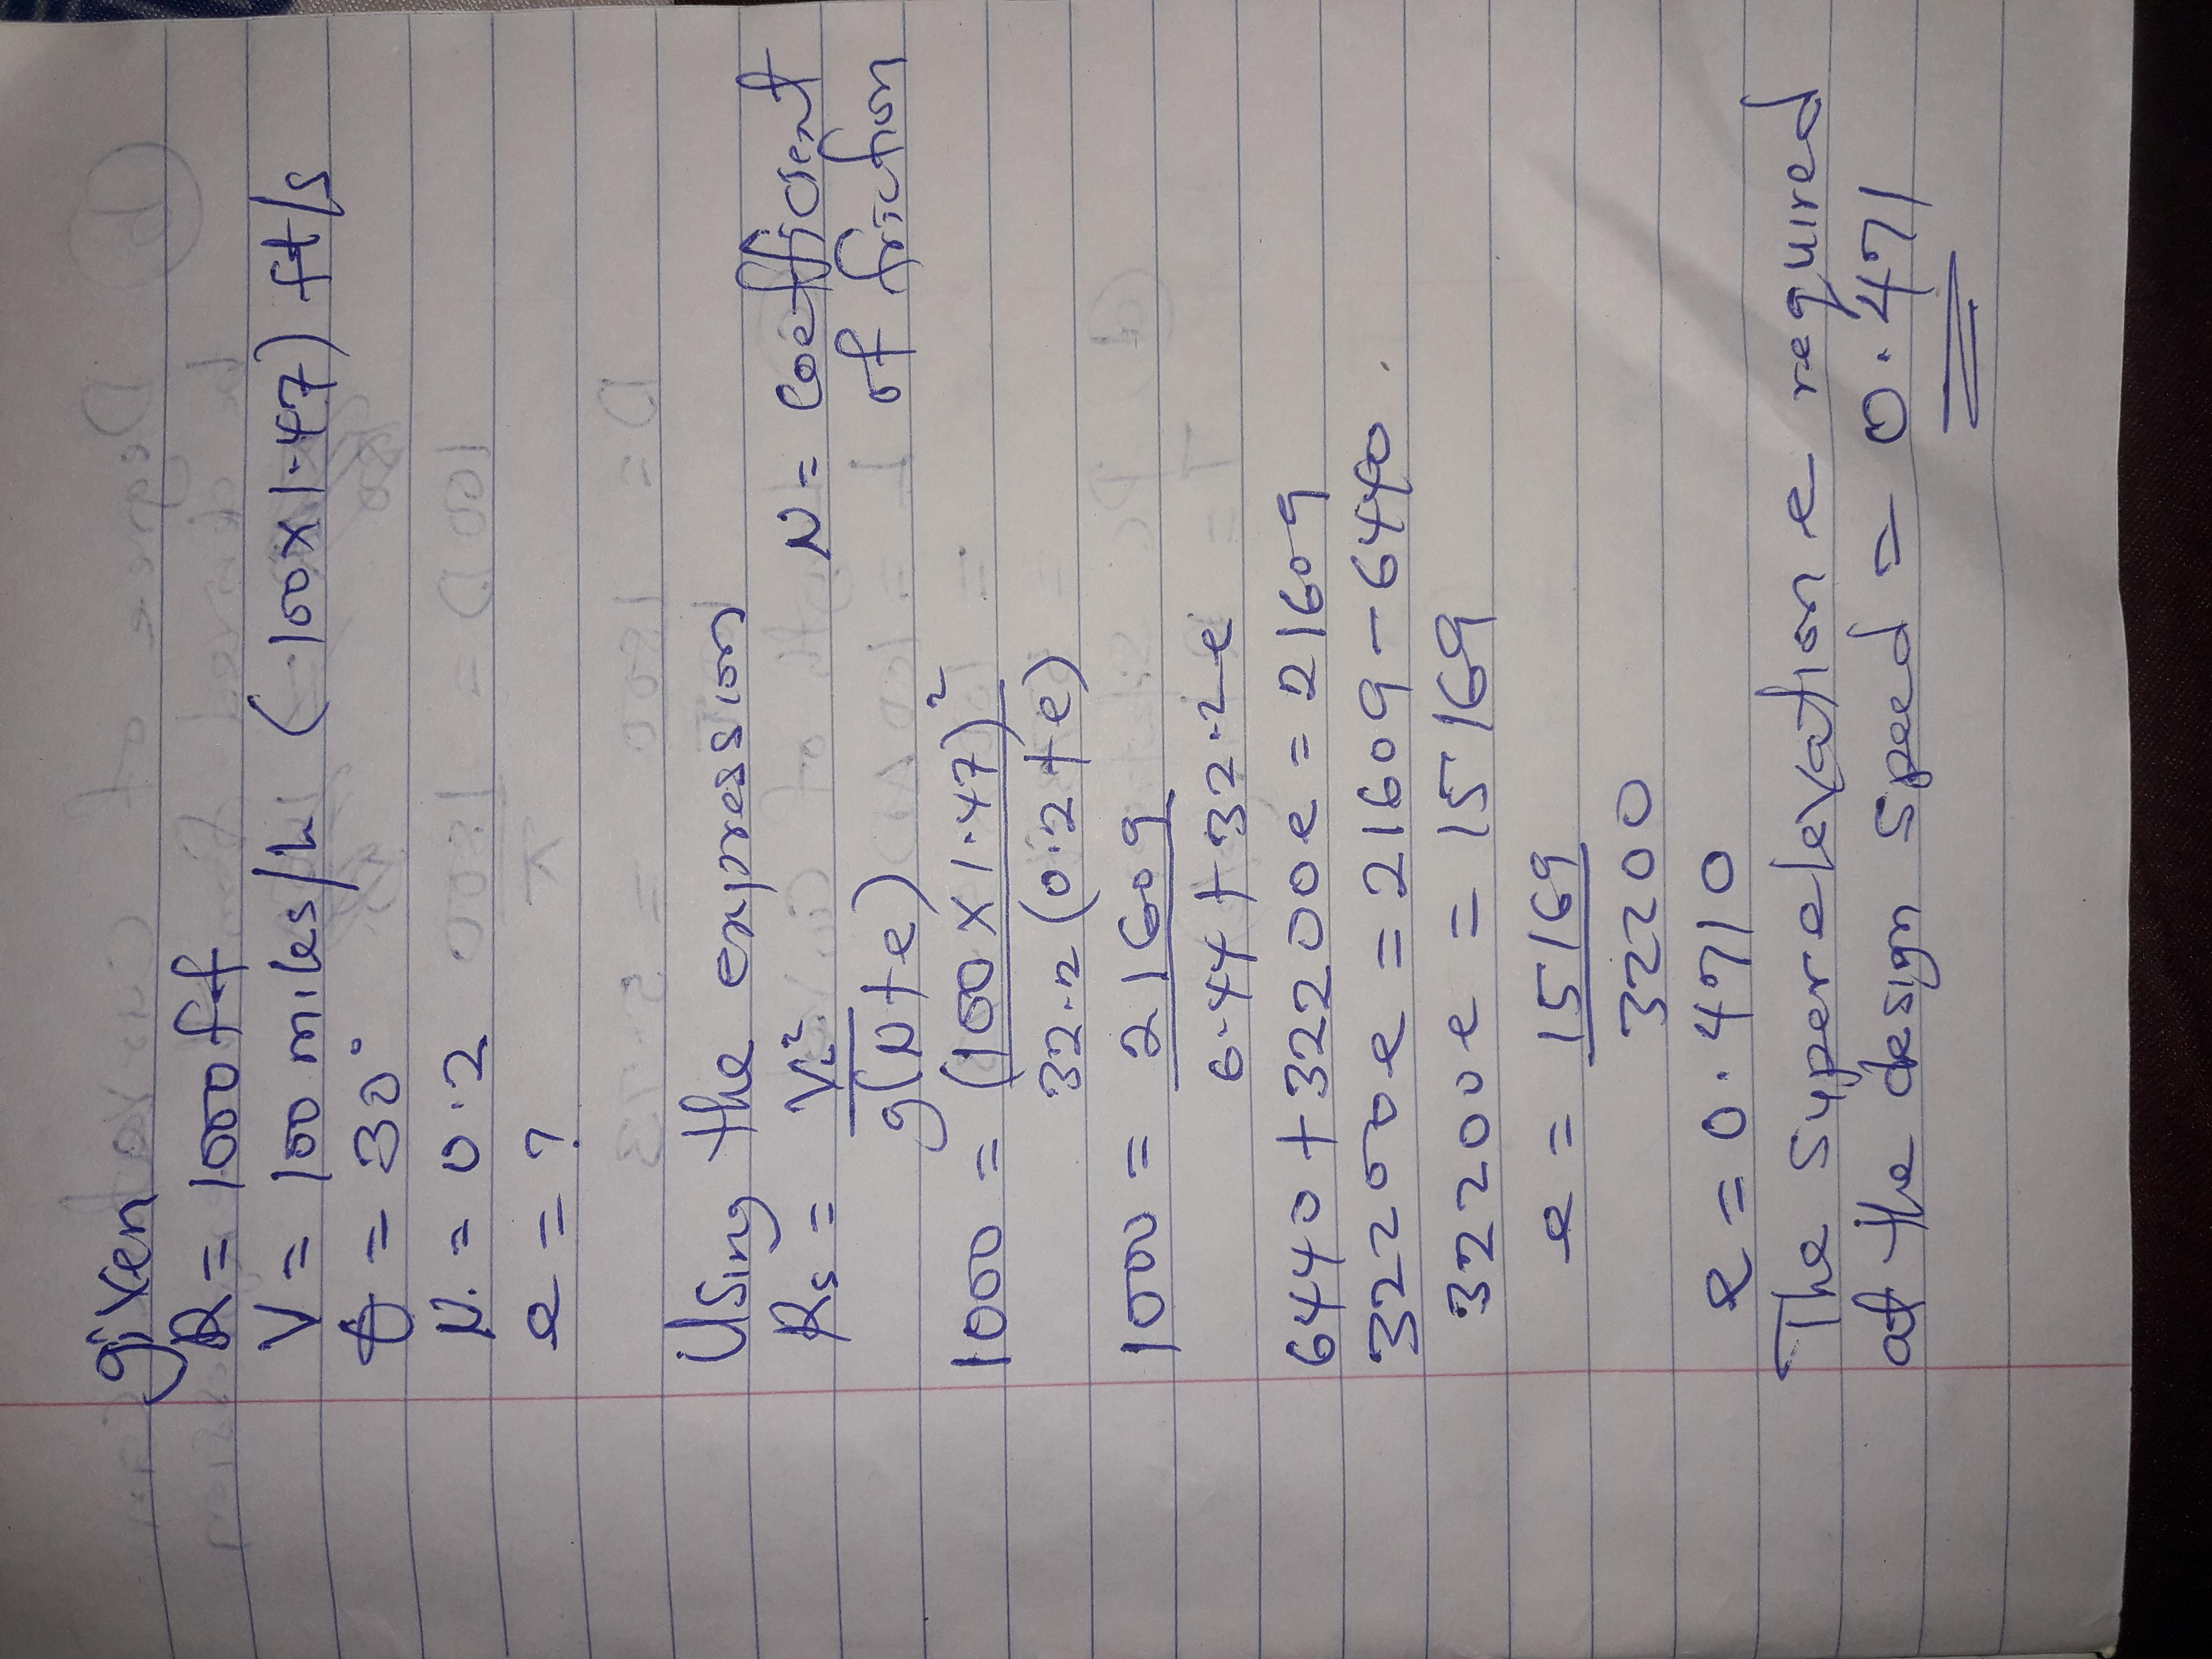 given
R = 1000ft
V = 100 miles/h (100 x 1.47) ft/s
θ = 30°
N. = 0.2
e = ?
Using the expression
Rs = V² N = Coefficient
g(N+e) of friction
1000 = (100 x 1.47)²
32.2 (0.2+e)
1000 = 21609
6.44 + 32.2e
6440 + 32200e = 21609
32200e = 21609 - 6440.
32200e = 15169
e = 15169
32200
e = 0.4710
The superelevation e required
at the design speed = 0.471